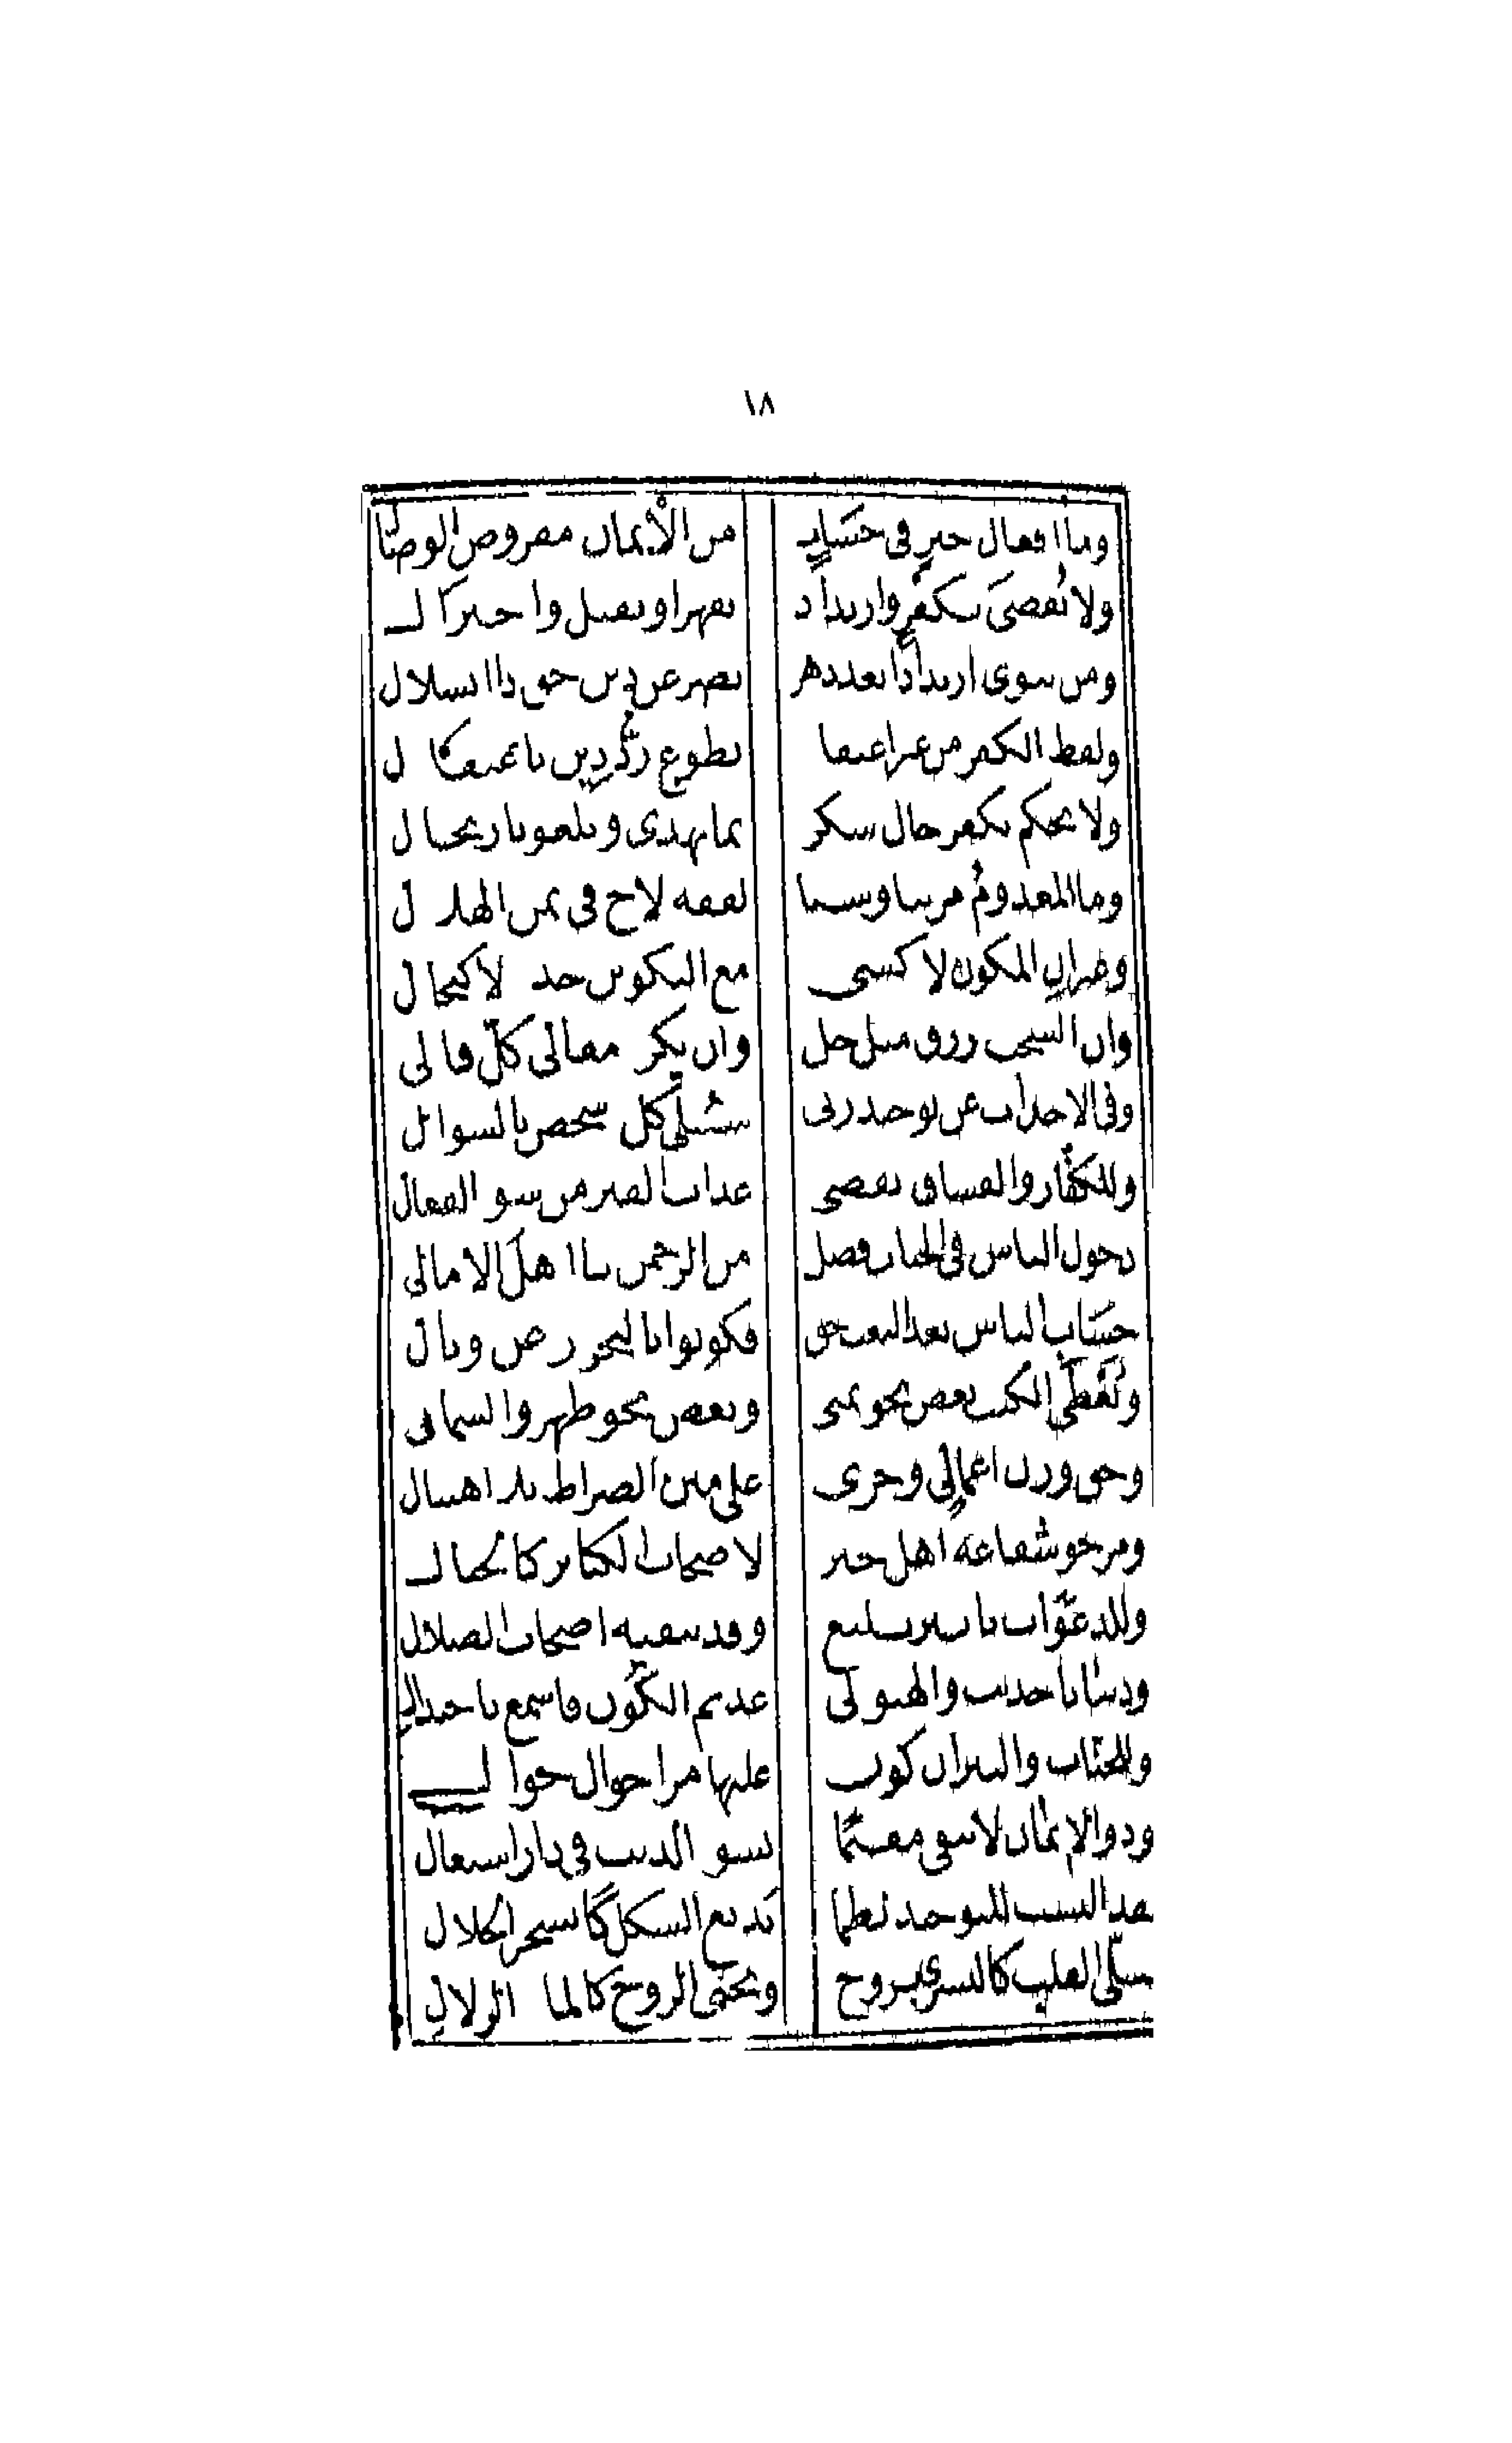 ١٨
وما افعال خير في حسابٍ من الأيمان مفروض الوصال
ولا يُقضى بكفرٍ وارتداد بقهر او بقتل واختزال
ومن ينوى ارتداداً بعد دهر يصر عن دين حق ذا انسلال
ولفظ الكفر من غير اعتقاد بطوع ردُّ دينٍ باغتفال
ولا يحكم بكفر حال سكر بما يهذى ويلغو بارتجال
وما المعدومُ مرئيا وشيئا لفقه لاح فى يمن الهلال
وغيران المكون لا كشىء مع التكوين خذ لاكتحال
وان السحت رزق مثل حل وان يكره مقالى كلّ قالى
وفى الاجداث عن توحيد ربى سيُبلى كل شخص بالسوال
وللكفّار والفساق يقضى عذاب القبر من سو الفعال
دخول الناس فى الجنات فضل من الرحمن يا اهل الامالى
حسَاب الناس بعد البعث حق فكونوا بالتحرز عن وبال
وتُعْطَى الكتب بعض نحو يمنى وبعض نحو ظهر والشمال
وحق وزن اعمالٍ وجرى على متن الصراط بلا اهتبال
ومرجو شفاعة اهل خير لاصحاب الكبائر كالجبال
وللدعوات تاثير بليغ وقد ينفيه اصحاب الضلال
ودنيانا حديث والهيولى عديم الكَون فاسمع باجتذال
وللجنّات والنيران كون عليها مر احوال خوالى
وذو الايمان لا يبقى مقيمًا بسو الذنب فى دار اشتعال
لقد البست للتوحيد نظما بَديع الشكل كالسحر الحلال
يسلّى القلب كالبشرى بروح ويحيى الروح كالما الزلال